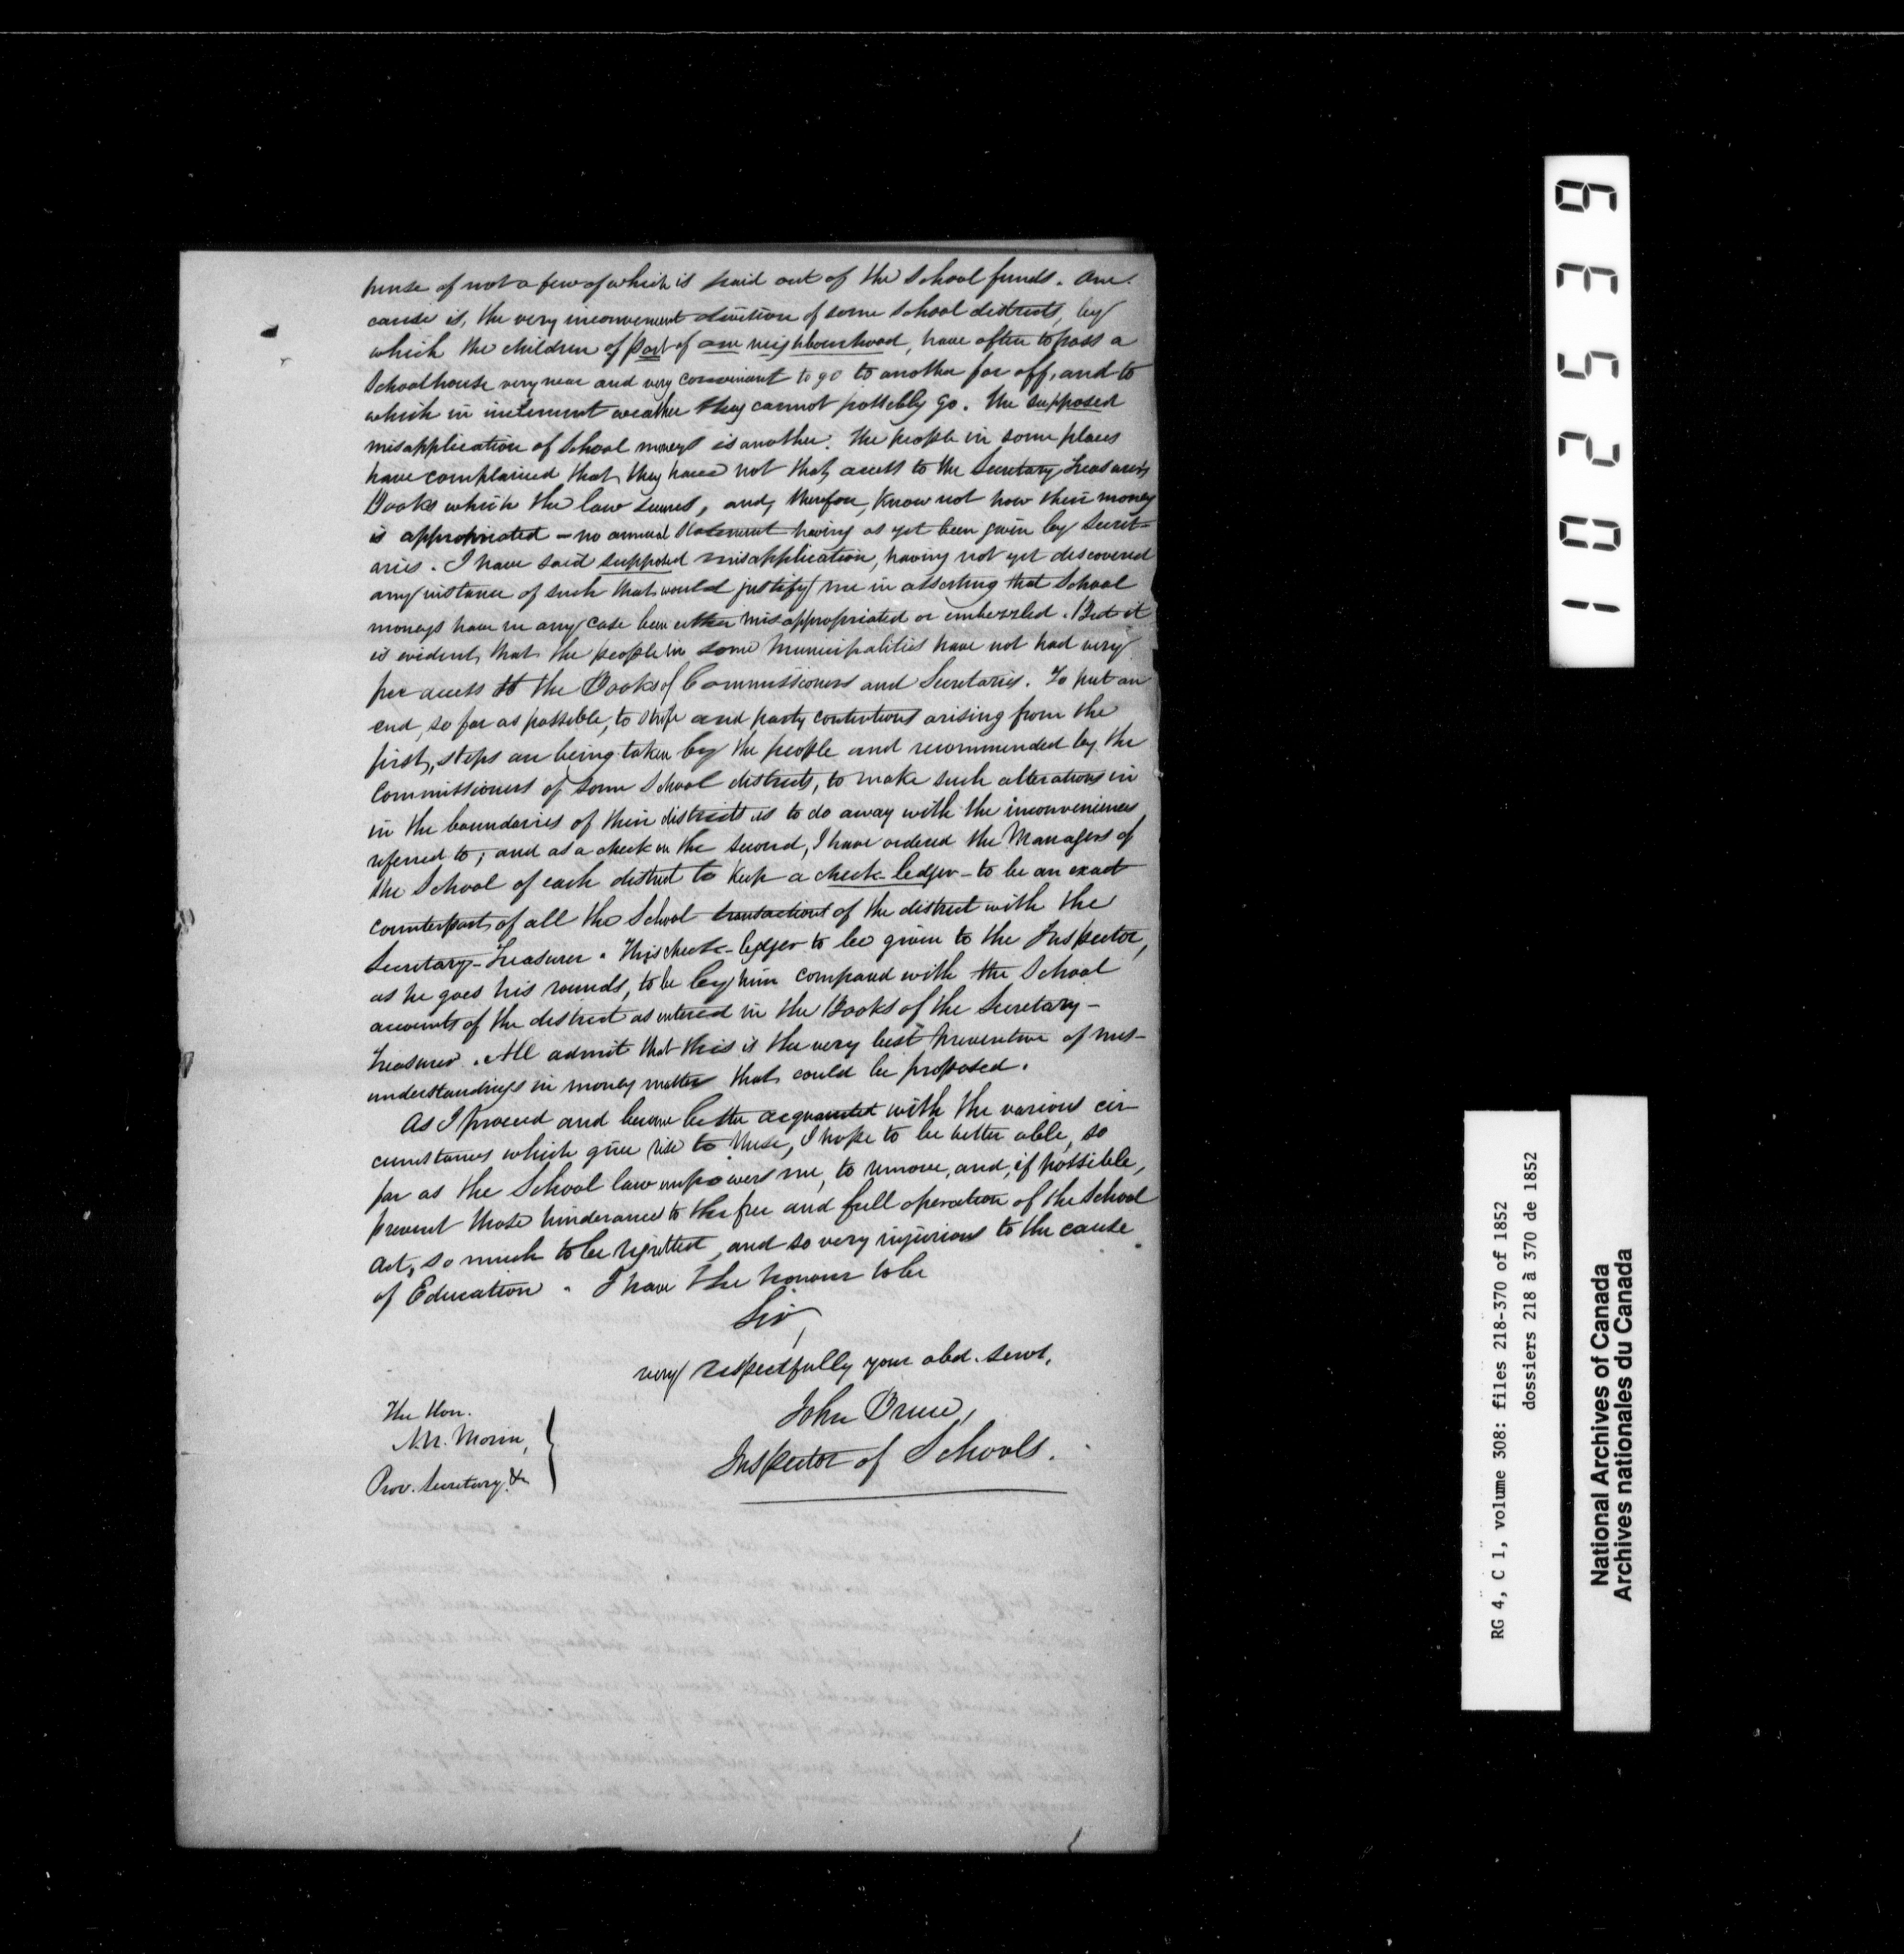 pense of not a few of which is paid out of the School funds. One
cause is, the very inconvenient division of some School districts, by
which the children of part of one neighbourhood, have often to pass a
Schoolhouse very near and very convenient to go to another far off, and to
which in inclement weather they cannot possibly go. The supposed
misapplication of School moneys is another. The people in some places
have complained, that, they have not that, access to the Secretary Treasurer's
Books which the law secures, and, therefore, know not how their money
is appropriated – no annual statement having as yet been given by Secret-
aries. I have said supposed misapplication, having not yet discovered
any instance of such that would justify me in asserting that School
moneys have in any case been either misappropriated or embezzled. But it
is evident, that the people in some Municipalities have not had very
free access to the Books of Commissioners and Secretaries. To put an
end, so far as possible, to strife and party contentions arising from the
first, steps are being taken by the people and recommended by the
Commissioners of some School districts, to make such alterations in
in the boundaries of their districts as to do away with the inconveniences
referred to; and as a check on the second, I have ordered the Managers of
the School of each district to keep a check-ledger – to be an exact
counterpart of all the School transactions of the district with the
Secretary-Treasurer. This check-ledger to be given to the Inspector,
as he goes his rounds, to be by him compared with the School
accounts of the district as entered in the Books of the Secretary-
Treasurer. All admit that this is the very best preventive of mis-
understandings in money matters that could be proposed.
As I proceed and become better acquainted with the various cir-
cumstances which give rise to these, I hope to be better able, so
far as the School law empowers me, to remove, and, if possible,
prevent those hinderances to the free and full operation of the School
Act, so much to be regretted, and so very injurious to the cause
of Education. I have the honour to be
Sir,
very respectfully your obd. servt,
John Bruce,
Inspector of Schools.
The Hon.
Mr. Morin,
Prov. Secretary &c
102539
RG 4, C 1, volume 308: files 218-370 of 1852
dossiers 218 à 370 de 1852
National Archives of Canada
Archives nationales du Canada